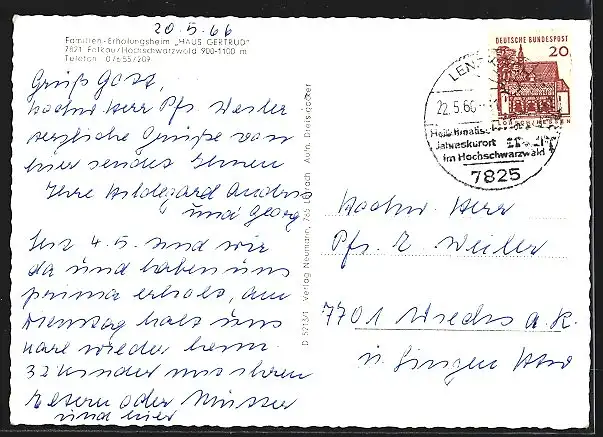 20.5.66
Familien-Erholungsheim „HAUS GERTRUD“
7821 Falkau/Hochschwarzwald 900-1100 m
Telefon 07655/209
Grüß Gott,
Hochw. Herr Pfr. Weiler
herzliche Grüße von
hier sendet Ihnen
Ihre Hildegard Anders
und Georg
Seit 4.5. sind wir
da und haben uns
prima erholt, am
Dienstag holt uns
Karl wieder heim.
32 Kinder mit ihren
Eltern oder Mutter
sind hier
D 5213/1 Verlag Neumann, 785 Lörrach Aufn. Dreisbacher
DEUTSCHE BUNDESPOST
20
LORSCH/HESSEN
LENZ
22.5.66
Heilklimatischer
Jahreskurort
im Hochschwarzwald
7825
Hochw. Herr
Pfr. E. Weiler
7701 Wiechs a. R.
ü. Singen Htw